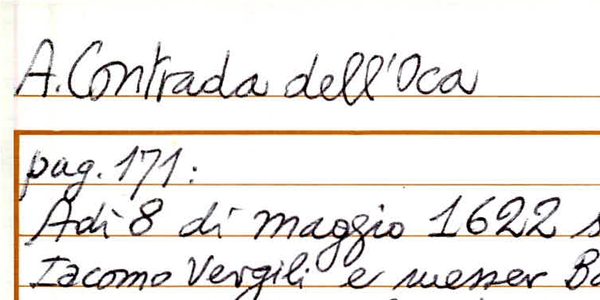 A. Contrada dell'Oca
pag. 171:
Adì 8 di maggio 1622
Iacomo Vergili e messer